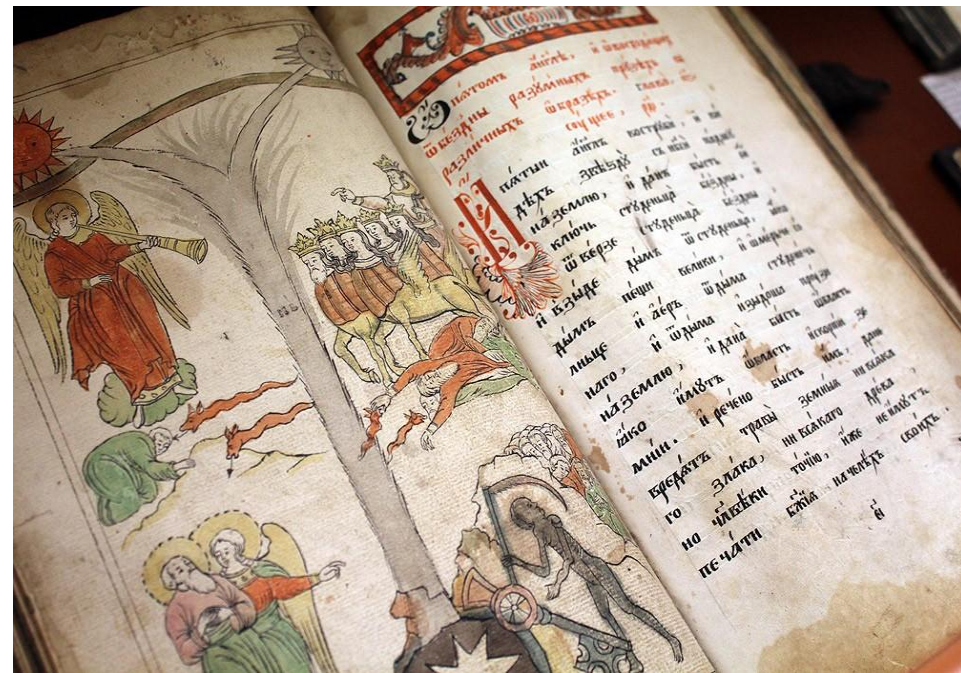 Ѽ пѧ́томъ а҆́нг҃лѣ, и҆
ѿ бе́здны разꙋ́мныхъ прꙋзѣ́хъ
разли́чныхъ ѡ҆́бразѣхъ. глава̀.
сꙋ́щее,
И пѧ́тыи а҆́нг҃лъ вострꙋбѝ, и҆ ви
дѣхъ ѕвѣздꙋ̀ съ нб҃сѝ па́дшꙋ
на́ землю, и҆ данъ бы́сть
клю́чь стꙋденца̀ бе́здны, и҆
ѿве́рзе стꙋденца̀ бе́здны
и҆ взы́де ды́мъ ѿ стꙋденца̀,
ды́мъ пе́щи вели́ки, и҆ ѡ҆ме́рче со
лньце и҆ а҆е́ръ ѿ ды́ма
наго, и҆ ѿ ды́ма и҆зыдо́ша прꙋ́зи
на́ землю, и҆ дана̀ бы́сть ѡ҆́бласть
ꙗ҆́ко и҆́мꙋтъ ѡ҆́бласть скорпі́и зе
мні́и. и҆ рече́но бы́сть и҆̀мъ, да не
вредѧ́тъ травы̀ земны́ѧ ни всѧ́ка
го зла́ка, ни всѧ́каго дре́ва
но чл҃вѣ́ки то́чїю, и҆́же не и҆́мꙋтъ
печа́ти бж҃їѧ на челѣ́хъ свои́хъ.